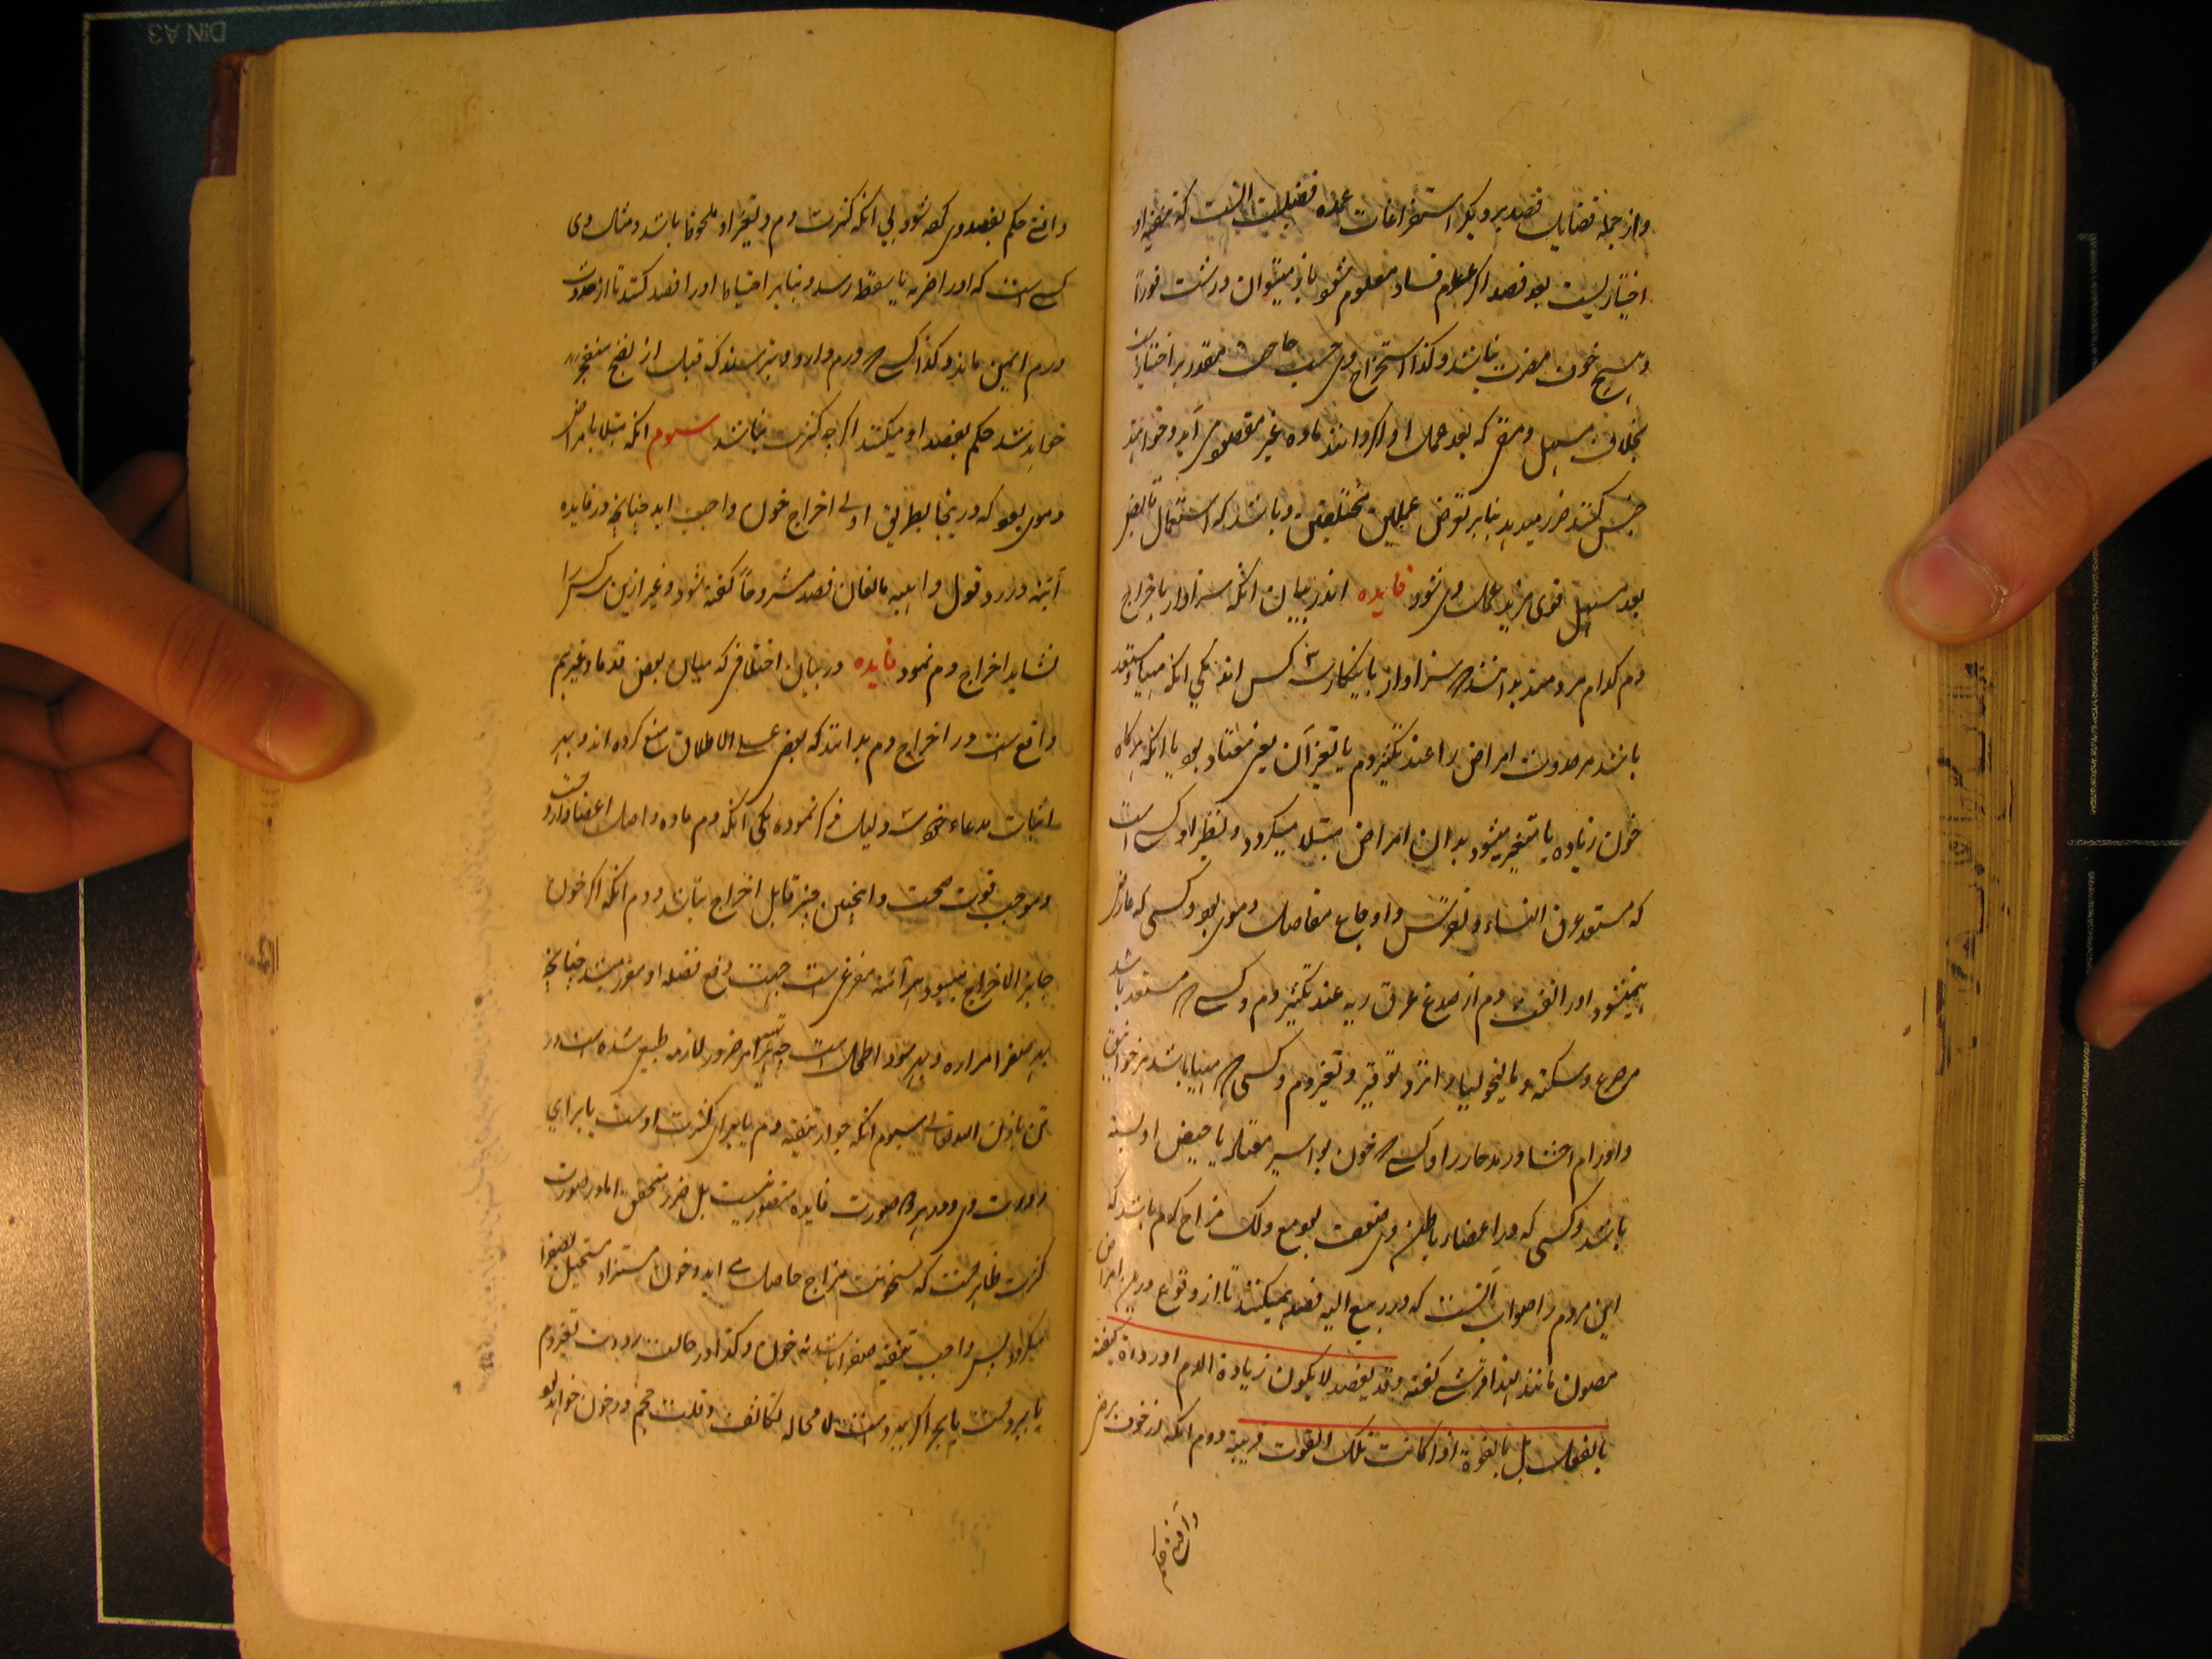 واز جمله فضایل فصد بر دیگر استفراغات عمده فضیلت آنست که تنقیه او
اختیاریست بعد فصد اگر علوم فساد معلوم شود باز میتوان درست فوراً
و هیچ خوف مضرت نباشد و کذا استخراج وی حسب حاجت مقدور بر اختیار
بخلاف مسهل و مقی که بعد عمل او اگر دانند ماده غیر مقصود می آید و خواهند
حبس کنند ضرر میدهد بنابر تعوض عملین مختلفین و باشد که استعمال قابض
بعد مسهل قوی مزید عمل وی شود فایده اندر بیان آنکه سزاوار باخراج
دم کدام مردمند بدانند که سزاوار باینکار سه کس اند یکی آنکه مهیا و مستعد
باشد مر حدوث امراض را عند تکثیر دم یا تغیر آن یعنی معتاد بود یا آنکه هر گاه
خون زیاده یا متغیر میشود بدان امراض مبتلا میگردد و نظیر او کسی است
که مستعد عرق النساء و نقرس و اوجاع مفاصل دموی بود و کسی که عارض
میشود او را نفث دم از صدع عرق ریه عند تکثیر دم و کسی که مستعد باشد
صرع و سکته و مالیخولیا را نزد توفیر و تغیر دم و کسی که مهیا باشد مر خوانیق
و اورام احشا و رمد حار را و کسی که خون بواسیر معتاد یا حیض او بسته
باشد و کسی که در اعضاء باطن وی ضعف بود مع ذلک مزاج گرم باشد که
این مردم را صواب آنست که در ربیع البته فصد میکنند تا از وقوع در این امراض
مصون مانند لهذا قرشی گفته و قد یفصد لا یکون زیادة الدم او رداءة کیفیته
بالفعل بل بالقوة اذا کانت تلک القوت قریبة دوم آنکه از خوف مرض
و آفتی حکم
و آفتی حکم بفصد وی کرده شود بی آنکه کثرت دم و تغیر او ملحوظ باشد و مثال وی
کسی است که او را ضربه یا سقطه رسد و بنابر احتیاط او را فصد کنند تا از حدوث
ورم ایمن ماند و کذا کسی که ورم دارد و می ترسند که قبل از نضج منفجر
خواهد شد حکم بفصد او میکنند اگر چه کثرت نباشد سیوم آنکه مبتلا بامراض
دموی بود که در اینجا بطریق اولی اخراج خون واجب آید چنانچه در فایده
آتیه در رد قول واهیه مانعان فصد مشروحاً گفته شود و غیر ازین سه کس را
نشاید اخراج دم نمود فایده در بیان اختلافی که میان بعض قدما و غیرهم
واقع است در اخراج دم بدانند که بعضی علی الاطلاق منع کرده اند و بهر
اثبات مدعاء خویش دلیل ذکر نموده یکی آنکه دم ماده و اصل اعضا و ارواحست
و موجب قوت صحت و اینچنین چیز قابل اخراج نباشد دوم آنکه اگر خون
جایز الاخراج میبود هر آئنه مفرغی است جهت دفع فضله او مقرر میشد چنانچه
بهر صفرا مراره و بهر سودا طحال است
تن باذن الله تعالی سیوم آنکه جواز تنقیه دم یا برای کثرت اوست یا برای
رداءت وی و در هر دو صورت فایده متصور نیست بل ضرر متحقق اما در صورت
کثرت ظاهر است که سخونت مزاج حاصل می آید و خون مستزاد مستحیل بصفرا
میگردد پس واجب تنقیه صفرا باشد نه خون و کذا در حالت رداءت تغیر دم
یا ببرد است یا بحر اگر ببرد است لا محاله تکاثف و قلت حجم در خون خواهد بود